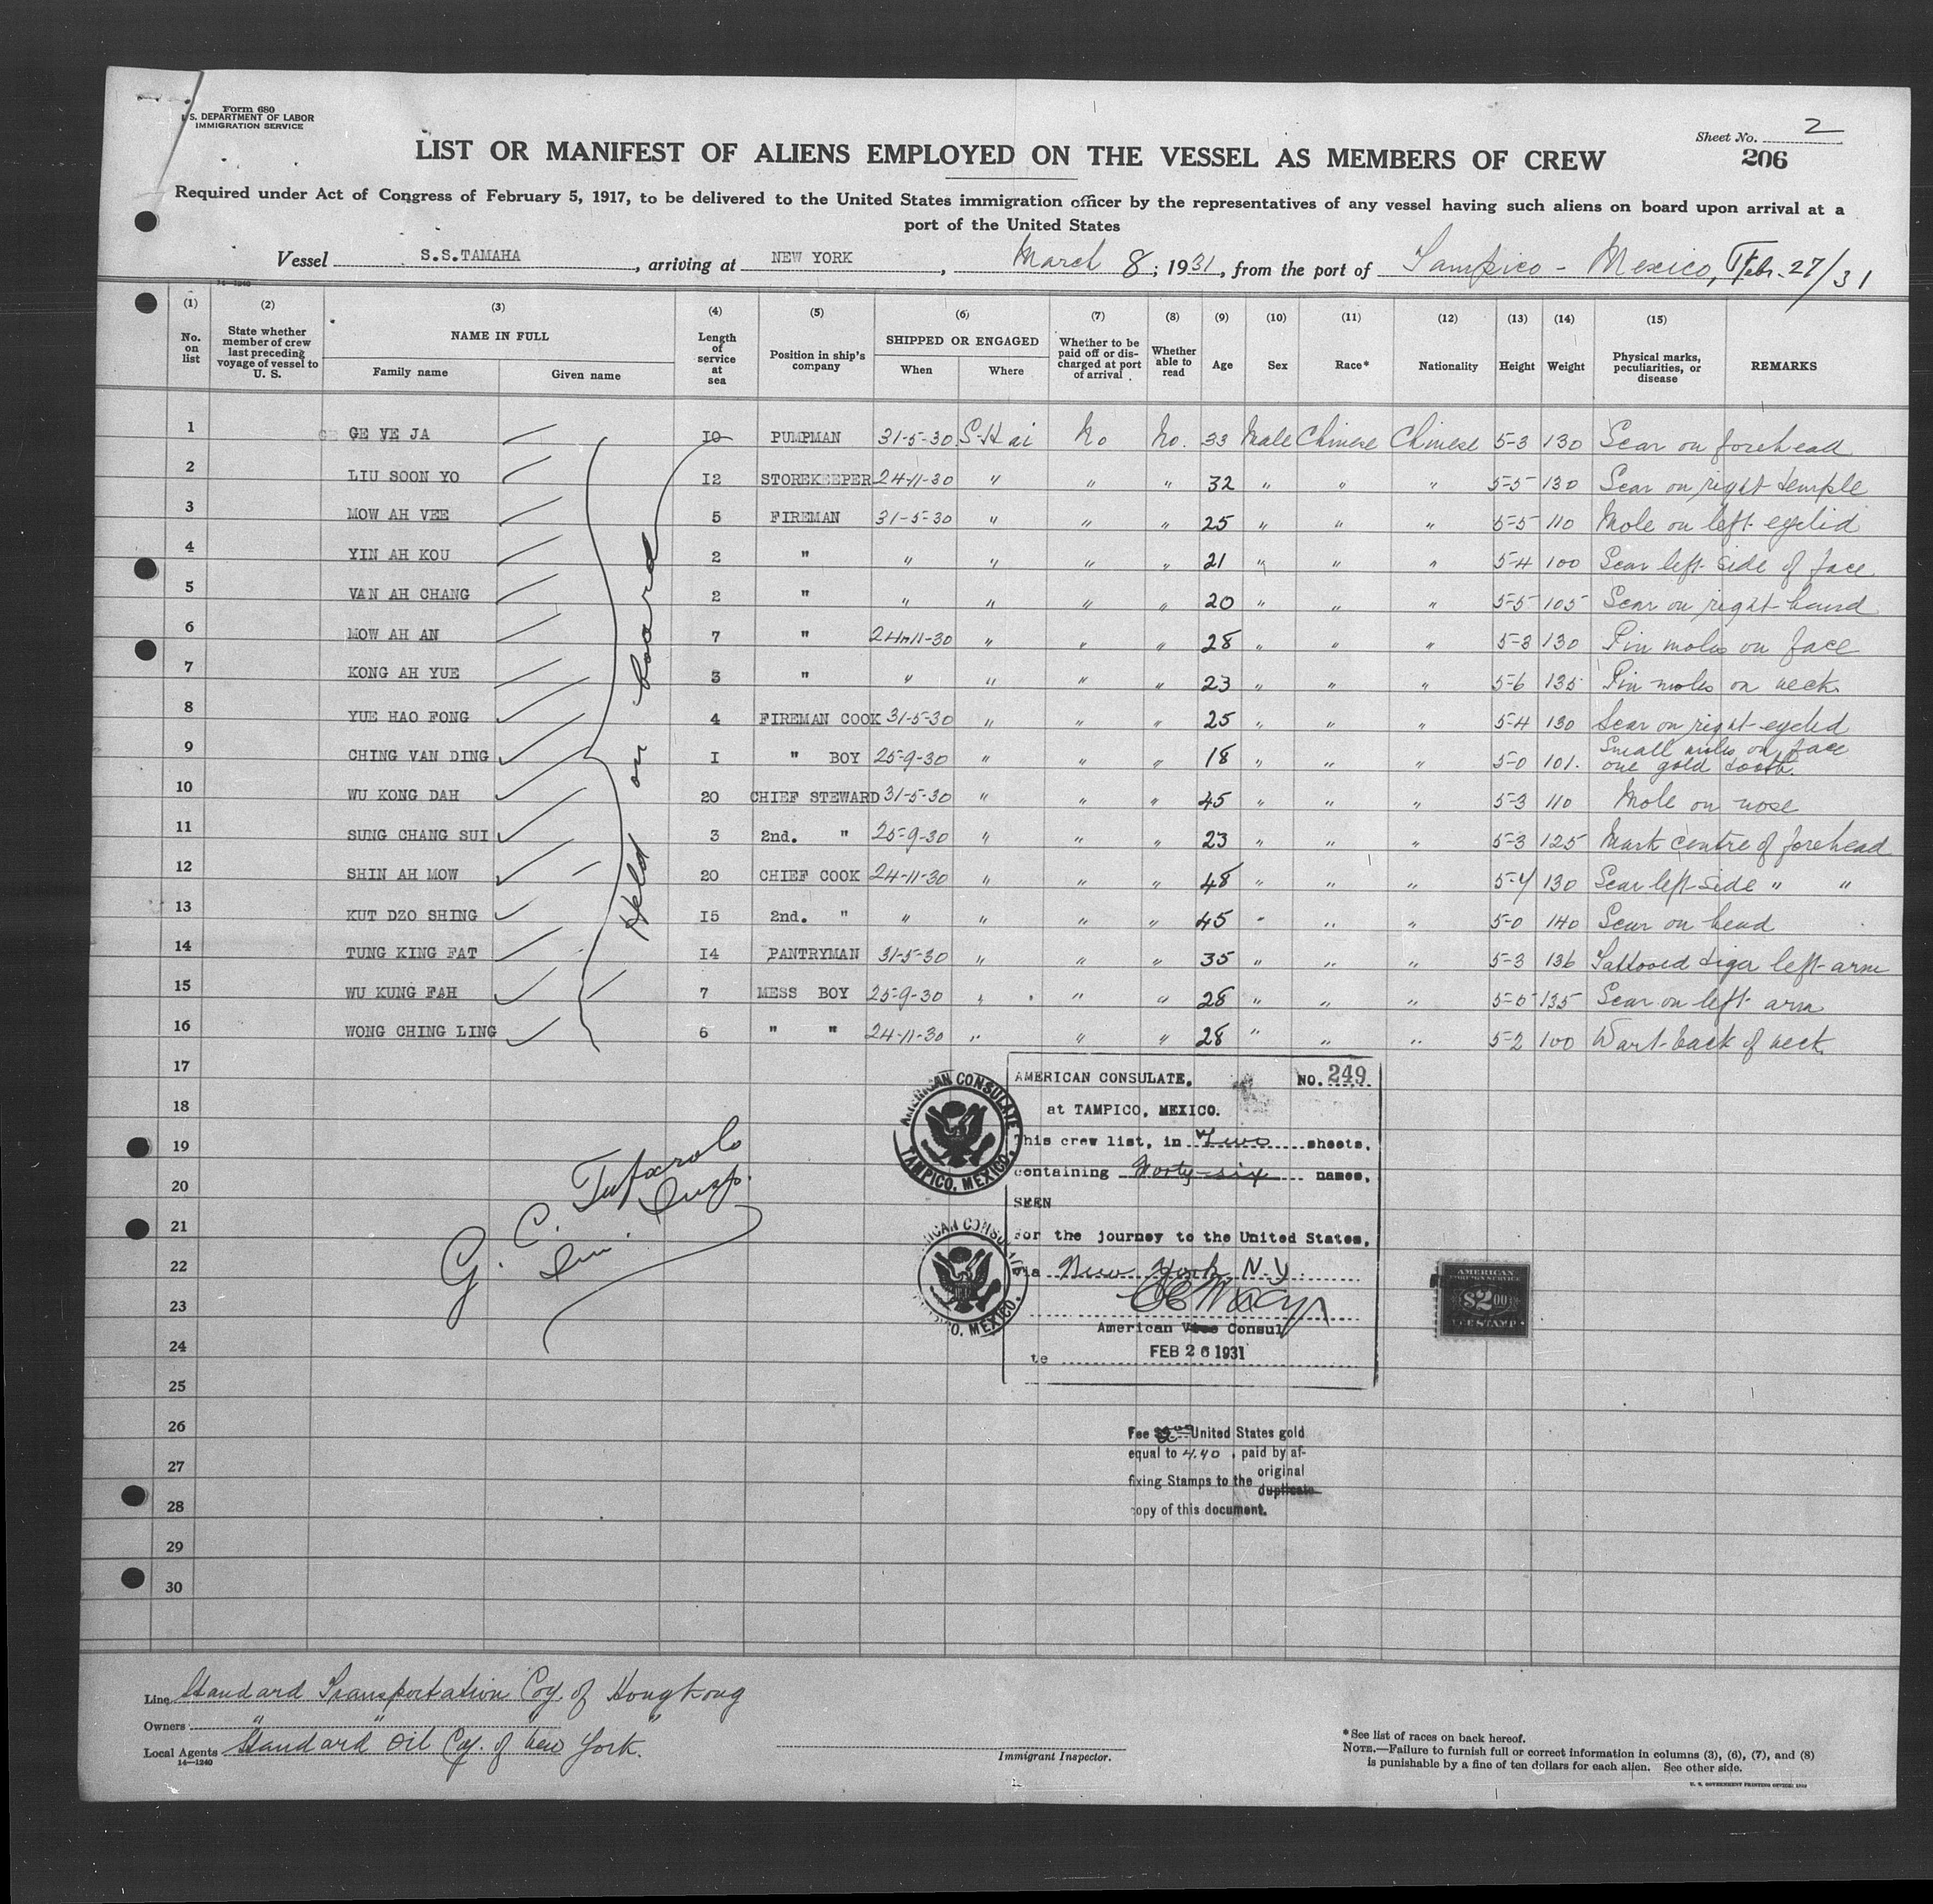 Form 680
U.S. DEPARTMENT OF LABOR
IMMIGRATION SERVICE
Sheet No. 2
206
LIST OR MANIFEST OF ALIENS EMPLOYED ON THE VESSEL AS MEMBERS OF CREW
Required under Act of Congress of February 5, 1917, to be delivered to the United States immigration officer by the representatives of any vessel having such aliens on board upon arrival at a
port of the United States
Vessel S.S.TAMAHA, arriving at NEW YORK, March 8; 1931, from the port of Tampico - Mexico, Febr. 27/31
14-1240
(1) (2) (3) (4) (5) (6) (7) (8) (9) (10) (11) (12) (13) (14) (15)
No. on list
State whether member of crew last preceding voyage of vessel to U. S.
NAME IN FULL
Family name
Given name
Length of service at sea
Position in ship's company
SHIPPED OR ENGAGED
When
Where
Whether to be paid off or discharged at port of arrival
Whether able to read
Age
Sex
Race*
Nationality
Height
Weight
Physical marks, peculiarities, or disease
REMARKS
1 GE VE JA 10 PUMPMAN 31-5-30 S-Hai No No. 33 Male Chinese Chinese 5-3 130 Scar on forehead
2 LIU SOON YO 12 STOREKEEPER 24-11-30 " " " 32 " " " 5-5 130 Scar on right temple
3 MOW AH VEE 5 FIREMAN 31-5-30 " " " 25 " " " 5-5 110 Mole on left eyelid
4 YIN AH KOU 2 " " " " " 21 " " " 5-4 100 Scar left side of face
5 VAN AH CHANG 2 " " " " " 20 " " " 5-5 105 Scar on right hand
6 MOW AH AN 7 " 24-11-30 " " " 28 " " " 5-3 130 Pin moles on face
7 KONG AH YUE 3 " " " " " 23 " " " 5-6 135 Pin moles on neck
8 YUE HAO FONG 4 FIREMAN COOK 31-5-30 " " " 25 " " " 5-4 130 Scar on right eyelid
9 CHING VAN DING 1 " BOY 25-9-30 " " " 18 " " " 5-0 101. Small moles on face
one gold tooth.
10 WU KONG DAH 20 CHIEF STEWARD 31-5-30 " " " 45 " " " 5-3 110 Mole on nose
11 SUNG CHANG SUI 3 2nd. " 25-9-30 " " " 23 " " " 5-3 125 Mark centre of forehead
12 SHIN AH MOW 20 CHIEF COOK 24-11-30 " " " 48 " " " 5-4 130 Scar left side " "
13 KUT DZO SHING 15 2nd. " " " " " 45 " " " 5-0 140 Scar on head
14 TUNG KING FAT 14 PANTRYMAN 31-5-30 " " " 35 " " " 5-3 136 Tattooed tiger left arm
15 WU KUNG FAH 7 MESS BOY 25-9-30 " " " 28 " " " 5-0 135 Scar on left arm
16 WONG CHING LING 6 " " 24-11-30 " " " 28 " " " 5-2 100 Wart back of neck
Held on board
17
18
19
20
21
22
23
24
25
26
27
28
29
30
AMERICAN CONSULATE
TAMPICO, MEXICO.
AMERICAN CONSULATE, NO. 249
at TAMPICO, MEXICO.
This crew list, in Two sheets,
containing Forty-six names,
SEEN
For the journey to the United States,
via New York N.Y.
American Vice Consul
FEB 26 1931
G. C.
Im. Insp.
AMERICAN
FOREIGN SERVICE
$2.00
FEE STAMP
Fee United States gold
equal to 4.40, paid by af-
fixing Stamps to the original
duplicate
copy of this document.
Line Standard Transportation Coy. of Hongkong
Owners " " "
Local Agents Standard Oil Coy. of New York.
14-1240
Immigrant Inspector.
*See list of races on back hereof.
NOTE.—Failure to furnish full or correct information in columns (3), (6), (7), and (8)
is punishable by a fine of ten dollars for each alien. See other side.